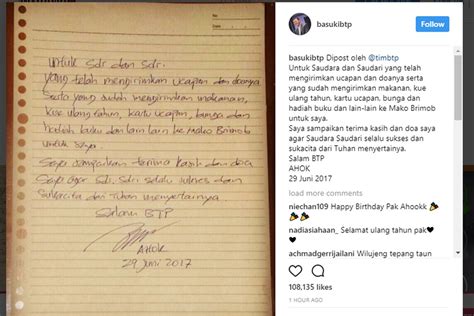 No.
Date
Untuk sdr dan sdri.
yang telah mengirimkan ucapan dan doanya
serta yang sudah mengirimkan makanan,
kue ulang tahun, kartu ucapan, bunga dan
hadiah buku dan lain-lain ke Mako Brimob
untuk saya.
Saya sampaikan terima kasih dan doa
saya agar sdr. sdri selalu sukses dan
sukacita dari Tuhan menyertainya.
Salam BTP
AHOK
29 Juni 2017
basukibtp
Follow
basukibtp Dipost oleh @timbtp
Untuk Saudara dan Saudari yang telah
mengirimkan ucapan dan doanya serta
yang sudah mengirimkan makanan, kue
ulang tahun, kartu ucapan, bunga dan
hadiah buku dan lain-lain ke Mako Brimob
untuk saya.
Saya sampaikan terima kasih dan doa saya
agar Saudara Saudari selalu sukses dan
sukacita dari Tuhan menyertainya.
Salam BTP
AHOK
29 Juni 2017
load more comments
niechan109 Happy Birthday Pak Ahookk
🎉🎉
nadiasiahaan_ Selamat ulang tahun pak❤
achmadgerrijailani Wilujeng tepang taun
108,135 likes
1 HOUR AGO